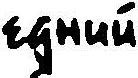 едний